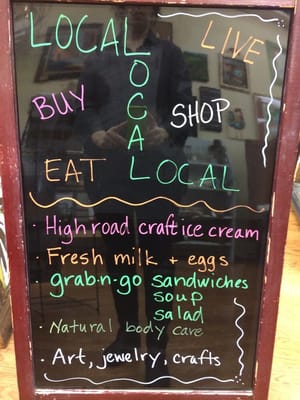 LOCAL LIVE
O
BUY C SHOP
A
EAT LOCAL
· High road craft ice cream
· Fresh milk + eggs
· grab-n-go sandwiches
soup
salad
· Natural body care
· Art, jewelry, crafts